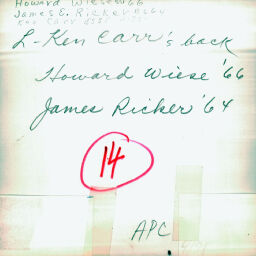 Howard Wiese '66
James E. Ricker '64
Ken Carr
L-Ken Carr's back
Howard Wiese '66
James Ricker '64
14
APC